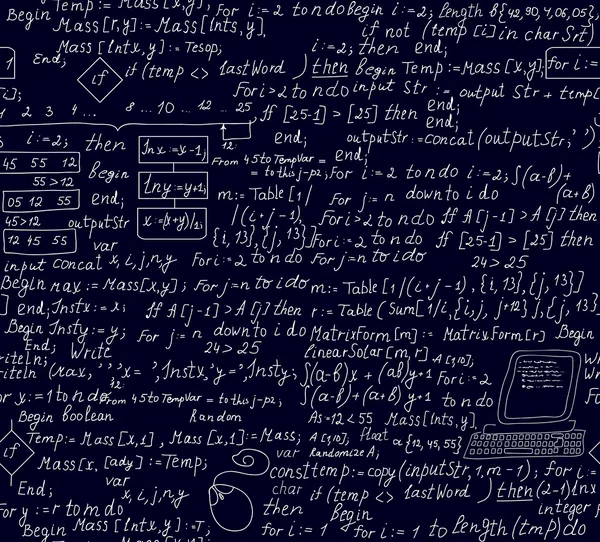 Begin Temp:=Mass[x,y]; For i:=2 to n do begin i:=2; length b{42,90,4,06,05};
Mass[r,y]:= Mass[lnts,y]; if not (temp[i] in char Srt)
Mass[lntx,y]:= Tesop; i:=2; then end;
1 End; if if (temp <> lastWord) then begin Temp:=Mass[x,y]; for i:=
[i]; For i>2 to n do input Str := output Str + temp[
1 2 3 4 ... 8 ... 10 ... 12 ... 25, If [25-1] > [25] then end;
end; end;
i:=2; then lnx:=x-1; 12: end; outputStr:=concat(outputStr,' ')
45 55 12 begin From 45 to TempVar = = to this j-p2; end; For i:= 2 to n do i:=2; ∫(a-b)+
55>12 lny:=y+1; m:= Table[1/ For j:= n down to i do (a+b)
05 12 55 end; /(i+j-1), For i>2 to n do If A[j-1] > A[j] then
45>12 outputStr x:=(x+y)/1; {i, 13},{j, 13}] For i:=2 to n do If [25-1] > [25] then
12 45 55 var For i:=2 to n do For j:=n to i do 24>25
input concat x, i, j, n, y
Begin max:=Mass[x,y]; For j:=n to i do m:=Table[1/(i+j-1),{i, 13},{j, 13}]
] end; Instx:=x; If A[j-1] > A[j] then r:=Table(Sum[1/i,{i,j, j+12},{j, 13]
Begin Insty:=y; For j:= n down to i do MatrixForm[m]:= MatrixForm[r] Begin
End; Write 24>25 linearSolar[m,r] A[3,10];
riteln; riteln (max, ' ',' x =', Instx,' y =', Insty; ∫(a-b)x + (ab)y+1 For i:=2
or x:=1 to n do 12: From 45 to TempVar = to this j-p2; ∫(a-b)+(a+b)y+1 to n do
Begin boolean Random As=12<55 Mass[lnts,y],
if Temp:= Mass[x,1], Mass[x,1]:=Mass; A[3,10]; float a{12,45,55}
Mass[x,[ady]:=Temp; var Randomize A;
var consttemp:=copy(inputStr,1,m-1); for i:=
End; x, i, j, n, y char if (temp <> lastWord) then (2-1) lnx
For y:=r to m do then Begin integer
Begin Mass[lntx,y]:=T; for i:=1 for i:=1 to Length(tmp) do